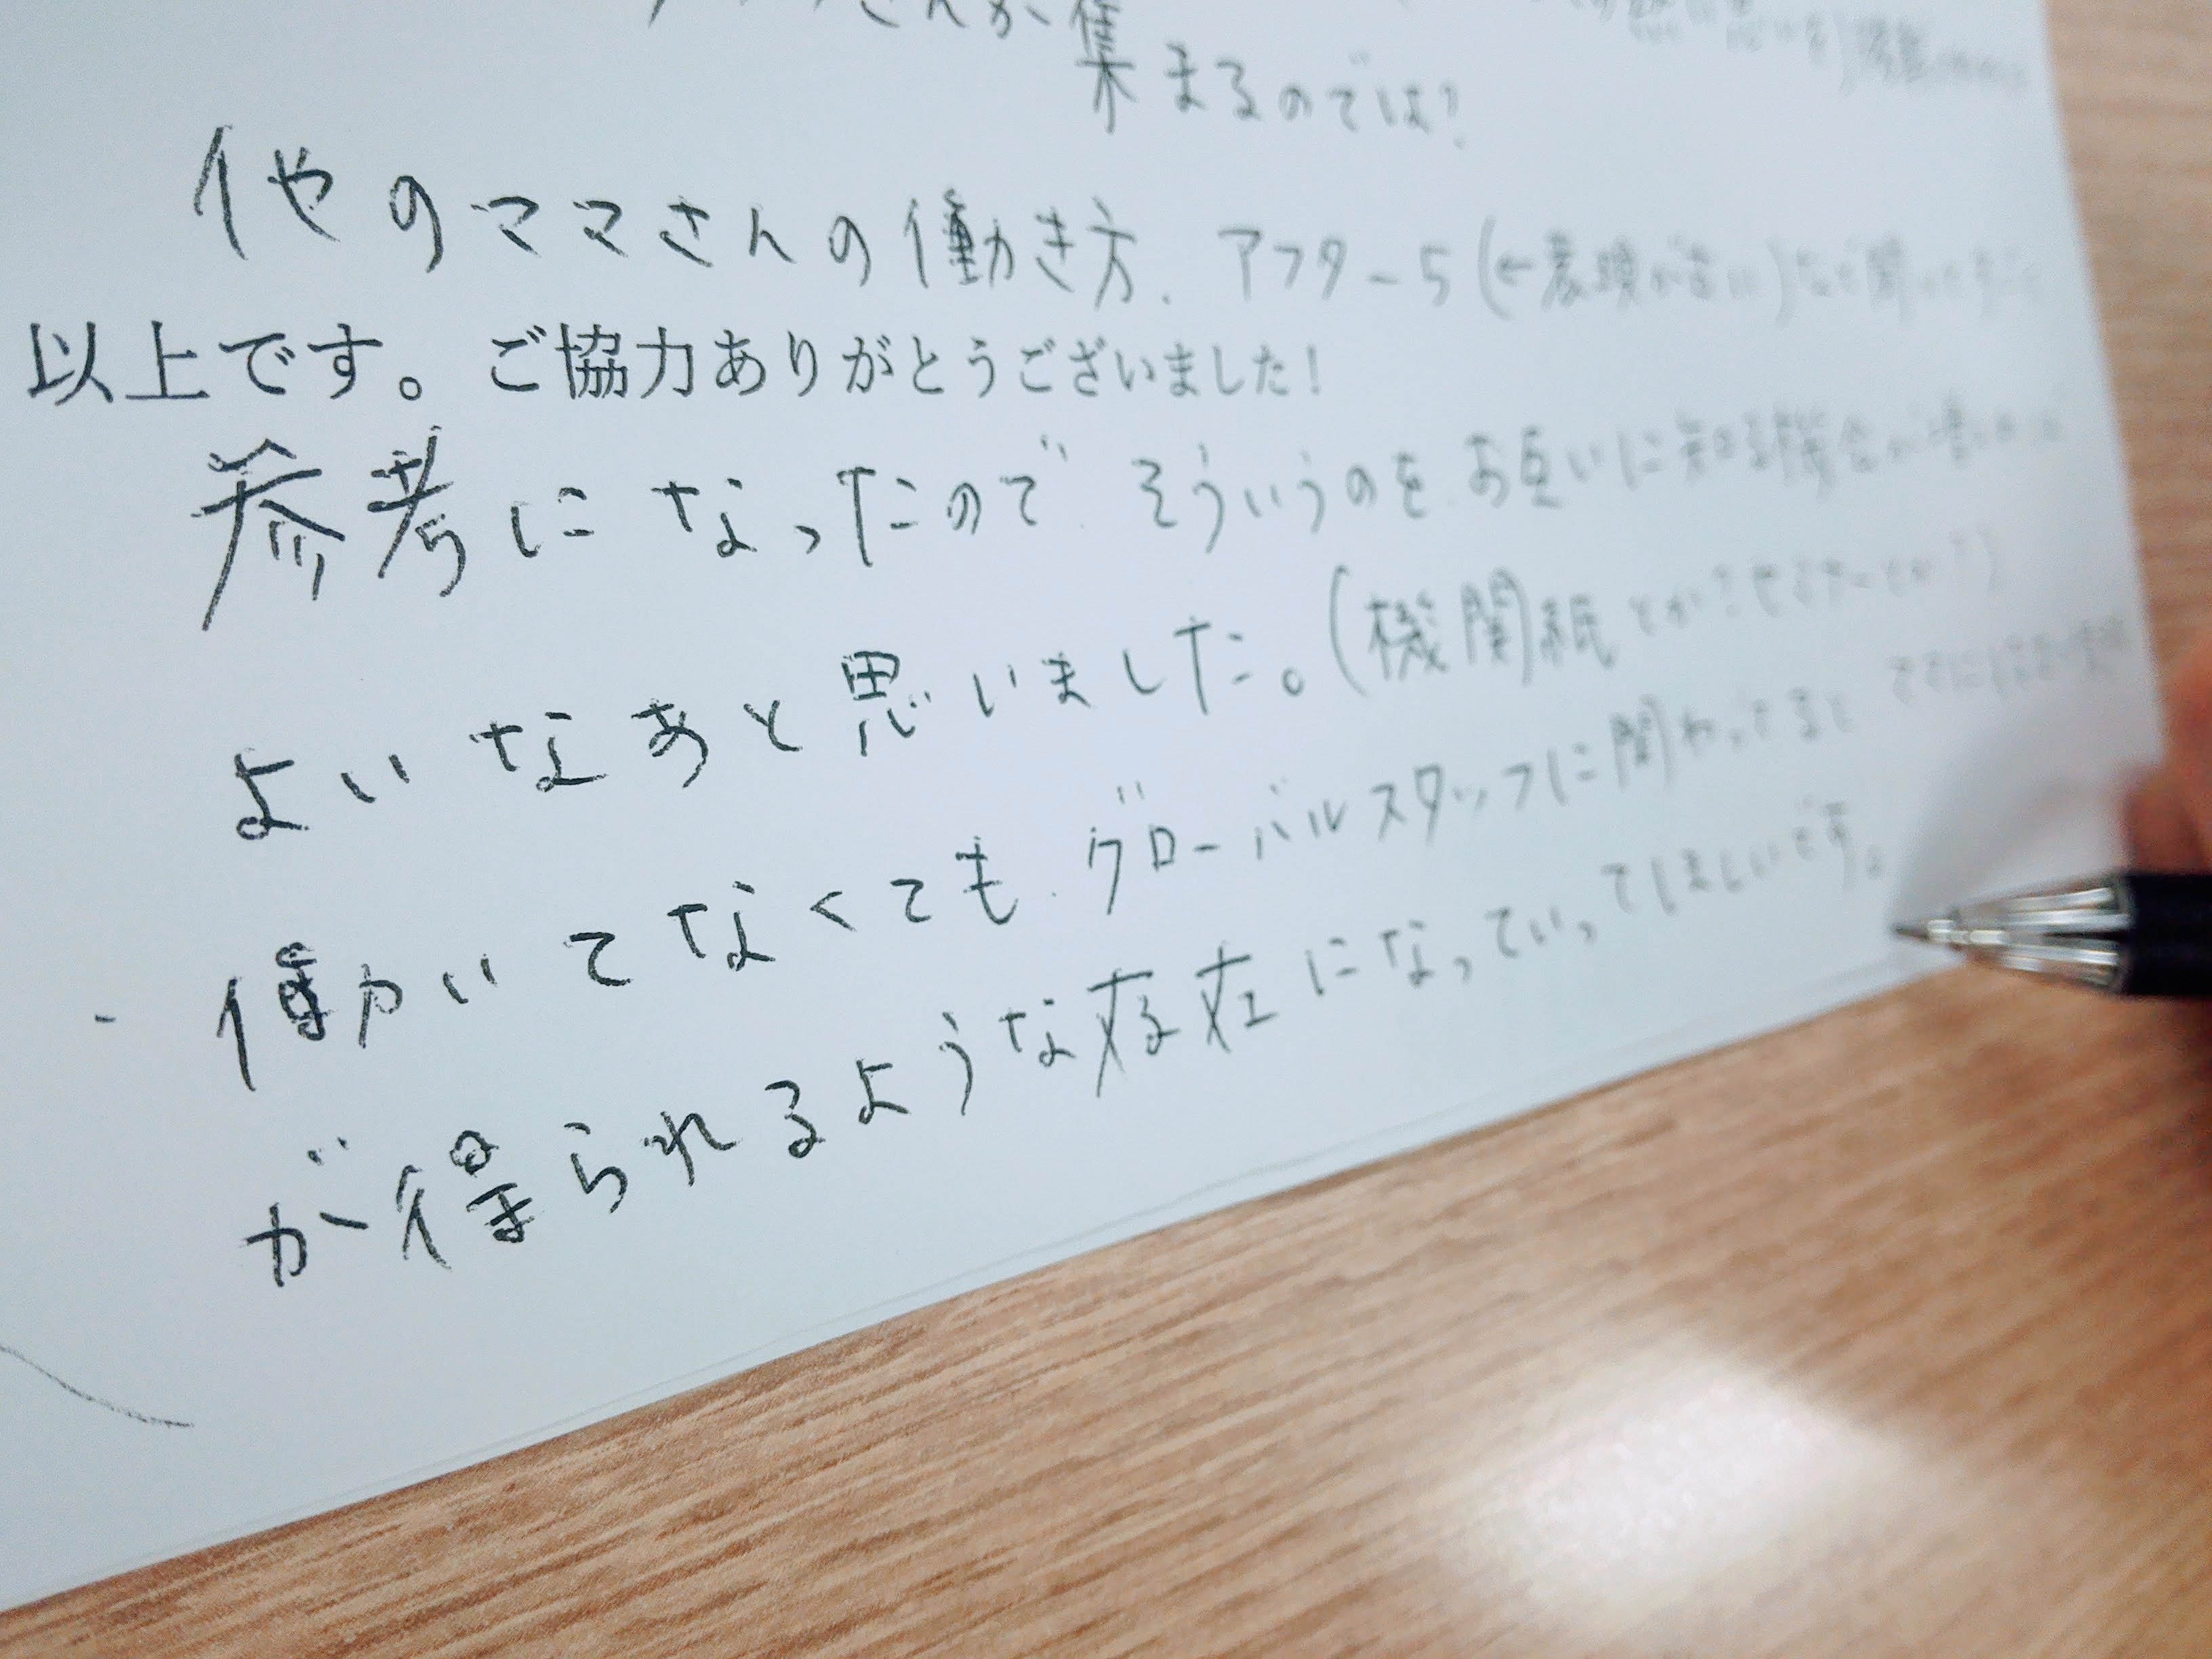 さんが集まるのでは?
他のママさんの働き方、アフター5(←表現が古い)など聞いて
以上です。ご協力ありがとうございました!
参考になったので、そういうのを、お互いに知る機会が
よいなあと思いました。(機関紙とか?セミナーとか?)
・働いてなくても、グローバルスタッフに関わってると
が得られるような存在になっていってほしいです。